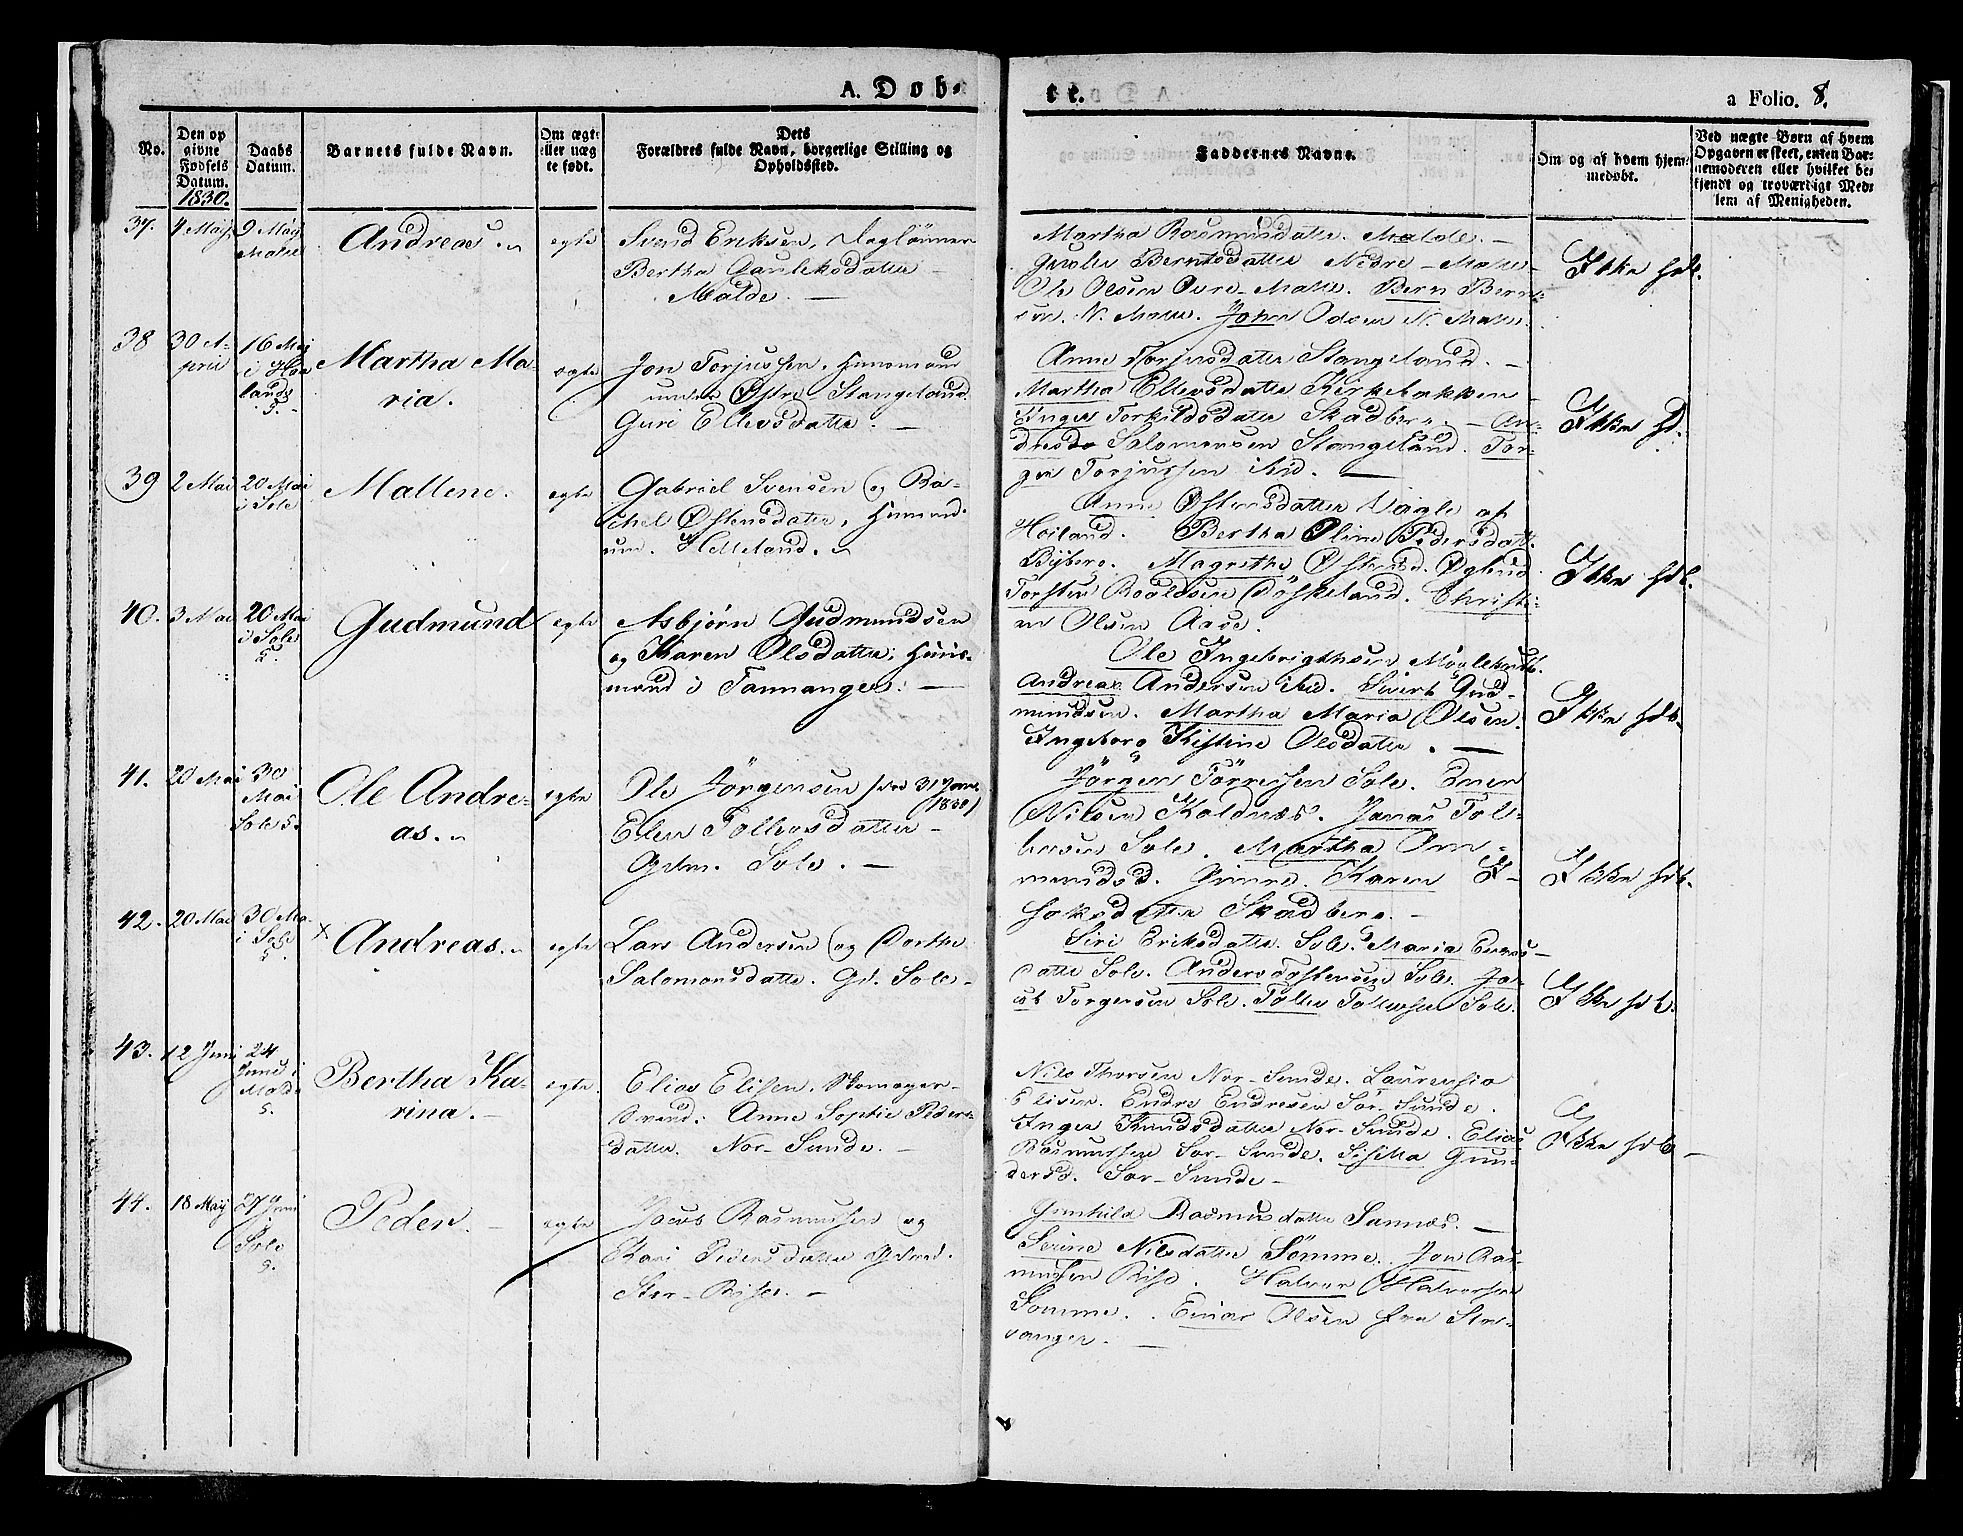 A. Døb-
te.
a Folio. 8.
No.
Den op
givne
Fødsels
Datum.
1830.
Daabs
Datum.
Barnets fulde Navn.
Om ægte
eller uæg
te født.
Dets
Forældres fulde Navn, borgerlige Stilling og
Opholdssted.
Faddernes Navne.
Om og af hvem hjem-
medøbt.
Ved uægte Børn af hvem
Opgaven er skeet, enten Bar-
nemoderen eller hvilket be-
kjendt og troværdigt Med-
lem af Menigheden.
37.
4 Maij
9 Maij
Malde
Andreas.
egte
Svend Eriksen, Daglønner
Bertha Gauleksdatter
Malde.
Martha Rasmusdatter Malde.
Berntsdatter Nedre-Malde
Ole Olsen Øvre-Malde. Bern Bern-
sen. N. Malde. John Odsen N. Malde.
Ikke hdb.
38
30 A-
pril
16 Maj
i Haa
lands
Martha Ma-
ria.
egte
Jon Torjussen, Huusmand
under Østre Stangeland
Guri Ellevsdatter.
Anne Torjusdatter Stangeland.
Martha Ellevsdatter Kirkebakken
Inger Torkildsdatter Skadberg. An-
dreas Salomonsen Stangeland. Tor-
ger Torjussen ibid.
Ikke hd.
39
2 Mai
20 Mai
i Sole
Mallene.
egte
Gabriel Svensen og Ra-
chel Østensdatter, Huusmd.
Helleland.
Anne Østensdatter Vaagle af
Høiland. Bertha Oline Pedersdatt.
Byberg. Magrethe Østensd. Øglend
Torsten Roaldsen Døskeland. Christi-
an Olsen Aase.
Ikke hdb.
40.
3 Mai
20 Mai
i Sole
Gudmund
egte
Asbjørn Gudmundsen
og Karen Olsdatter, Huus-
mand i Tannanger.
Ole Ingebrigthsen Møglebust.
Andreas Andersen ibid. Sivert Gud-
mundsen. Martha Maria Olsen.
Ingeborg Kistine Olsdatter.
Ikke hdb.
41.
20 Mai
30
Mai
Sole
Ole Andre-
as.
egte
Ole Jörgensen
Elen Tollevsdatter
Gdm. Sole.
Jörgen Törresen Sole. Einer
Nilsen Koldnæs. Jonas Tol-
lavsen Sole. Martha Om-
mundsd. Grimre. Karen I-
saksdatter Skadberg.
Ikke hdb.
42.
20 Mai
30 Ma-
i Sole
Andreas.
egte
Lars Andersen og Dorthe
Salomonsdatter. Gd. Sole.
Siri Eriksdatter Sole. Maria Einars-
datter Sole. Anders Tostensen Sole. Ja-
cob Torgersen Sole. Tollev Tollevsen Sole.
Ikke hdb.
43.
12 Juni
24
Juni i
Malde
Bertha Ka-
rina.
egte
Elias Elisen. Skomager-
svend. Anne Sophie Peders
datter. Nor-Sunde.
Nils Thorsen Nor-Sunde. Laurensia
Elisen. Endre Endresen Sør-Sunde.
Inger Knudsdatter Nor-Sunde. Elias
Rasmussen Sør-Sunde. Sisilla Gun-
dersd. Sør-Sunde
Ikke hdb
44.
18 Maij
27 Juni
i
Sole
Peder.
egte
Jacob Rasmussen og
Kari Pedersdatter Gdmd.
Stor-Risa.
Gunhild Rasmusdatter Sannæs.
Serine Nilsdatter Sömme. Jon Ras-
mussen Risa. Halvor Halvorsen
Somme. Einar Olsen fra Sta-
vanger.